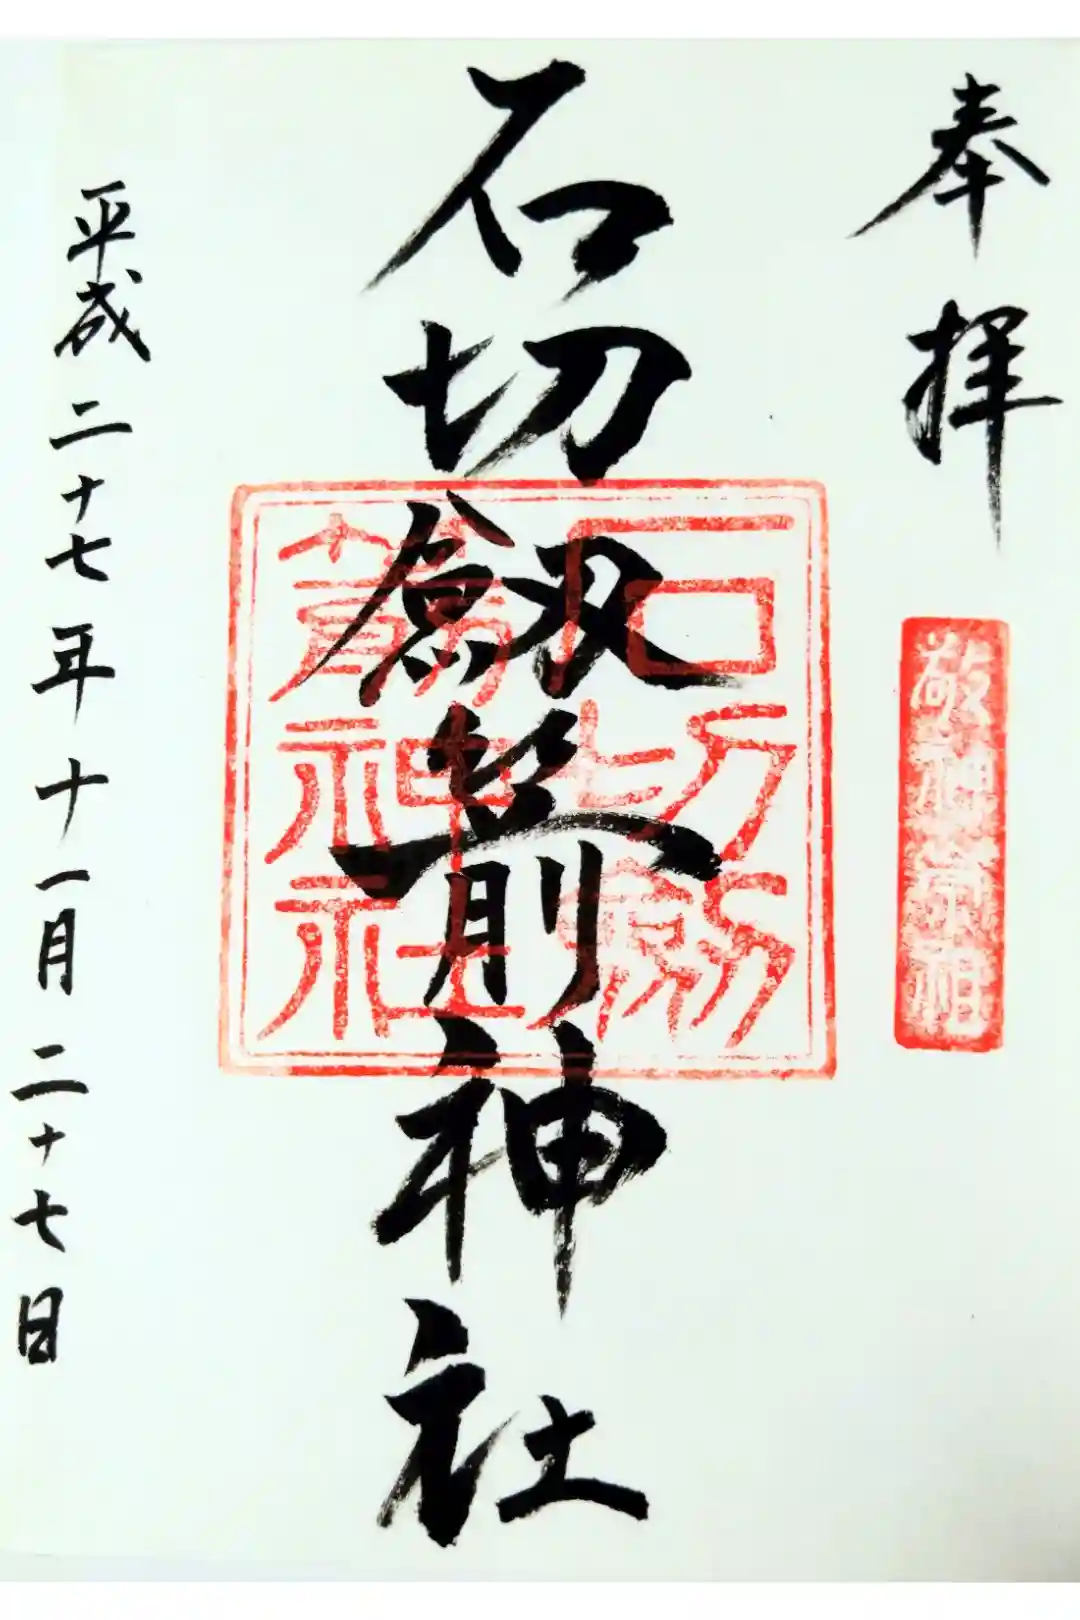 奉拝
敬神崇祖
石切劔箭神社
石切劔
箭神社
平成二十七年十一月二十七日